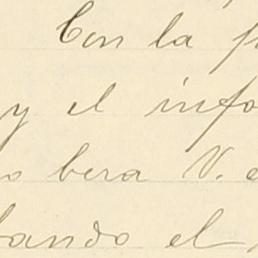 Con la
y el info
bera V. e
ando el